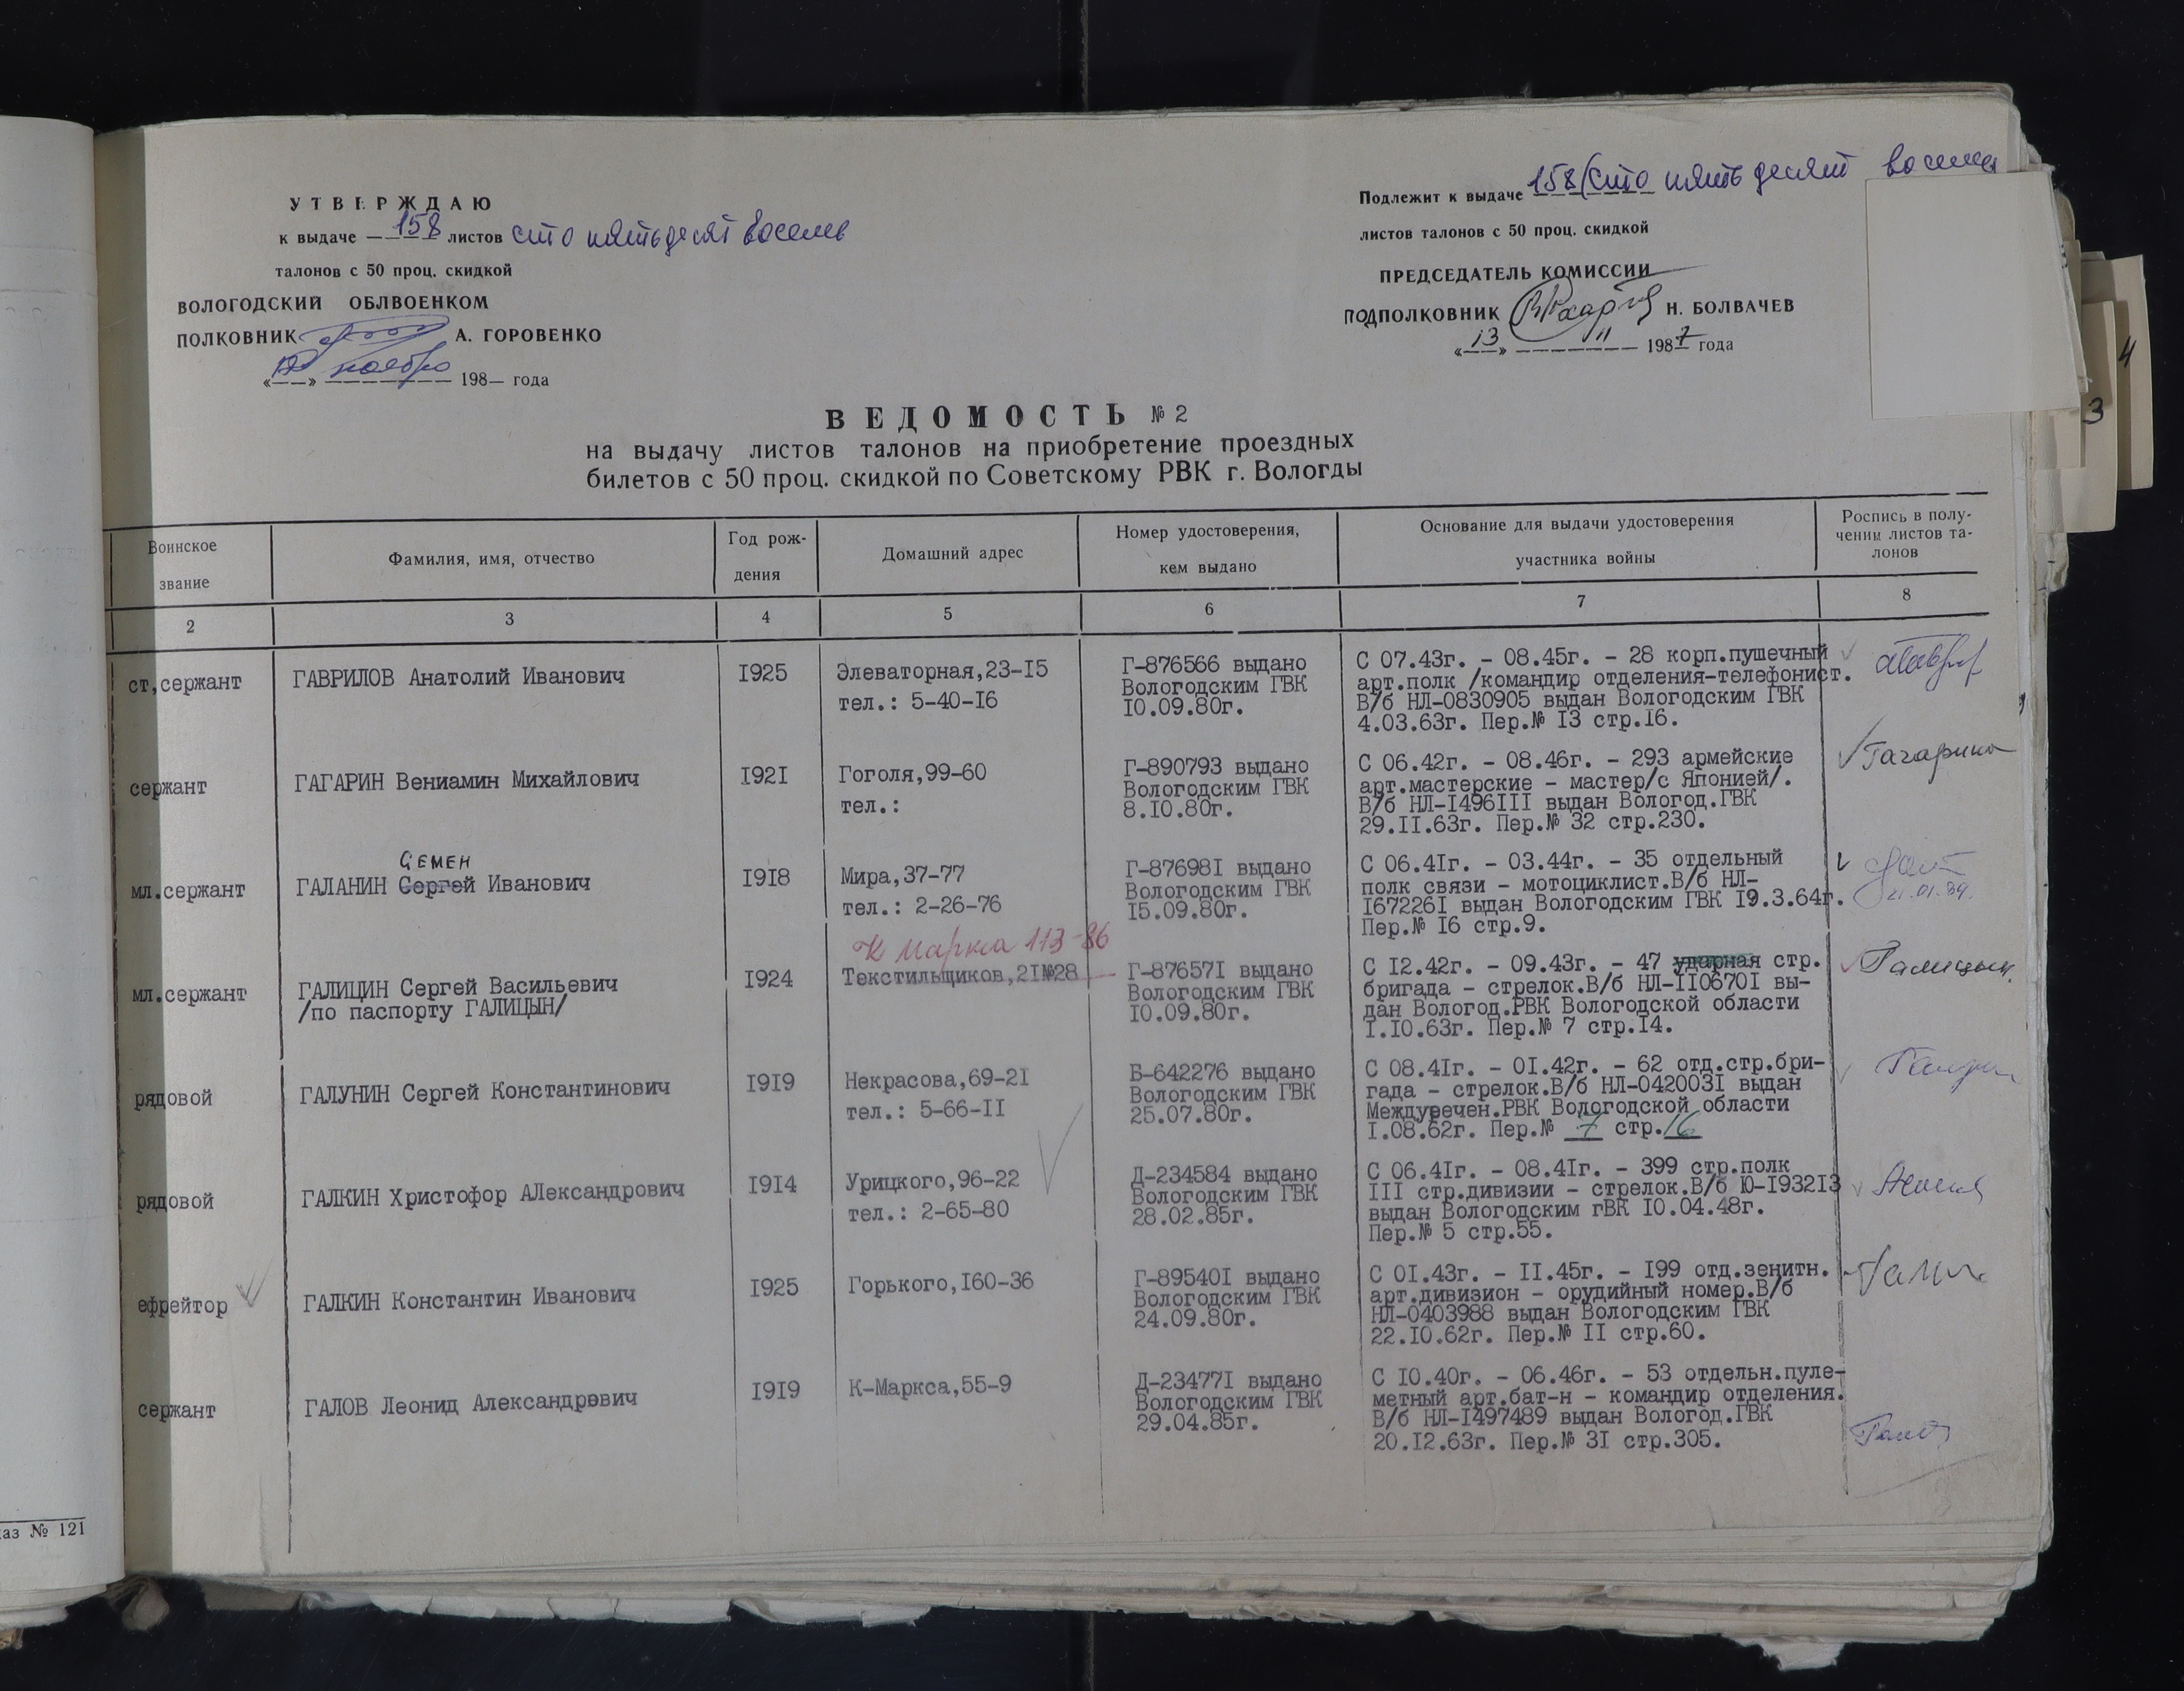 УТВЕРЖДАЮ
к выдаче 158 листов сто пятьдесят восемь
талонов с 50 проц. скидкой
ВОЛОГОДСКИЙ ОБЛВОЕНКОМ
ПОЛКОВНИК А. ГОРОВЕНКО
« » ноября 198 года
Подлежит к выдаче 158 (сто пятьдесят восемь
листов талонов с 50 проц. скидкой
ПРЕДСЕДАТЕЛЬ КОМИССИИ
ПОДПОЛКОВНИК Н. БОЛВАЧЕВ
«13» 11 1987 года
ВЕДОМОСТЬ № 2
на выдачу листов талонов на приобретение проездных
билетов с 50 проц. скидкой по Советскому РВК г. Вологды
Воинское
звание
Фамилия, имя, отчество
Год рож-
дения
Домашний адрес
Номер удостоверения,
кем выдано
Основание для выдачи удостоверения
участника войны
Роспись в полу-
чении листов та-
лонов
2 3 4 5 6 7 8
ст,сержант
ГАВРИЛОВ Анатолий Иванович
I925
Элеваторная,23-I5
тел.: 5-40-I6
Г-876566 выдано
Вологодским ГВК
I0.09.80г.
С 07.43г. - 08.45г. - 28 корп.пушечный
арт.полк /командир отделения-телефонист.
В/б НЛ-0830905 выдан Вологодским ГВК
4.03.63г. Пер.№ I3 стр.I6.
сержант
ГАГАРИН Вениамин Михайлович
I92I
Гоголя,99-60
тел.:
Г-890793 выдано
Вологодским ГВК
8.I0.80г.
С 06.42г. - 08.46г. - 293 армейские
арт.мастерские - мастер/с Японией/.
В/б НЛ-I496III выдан Вологод.ГВК
29.II.63г. Пер.№ 32 стр.230.
Гагарин
мл.сержант
СЕМЕН
ГАЛАНИН Сергей Иванович
I9I8
Мира,37-77
тел.: 2-26-76
Г-87698I выдано
Вологодским ГВК
I5.09.80г.
С 06.4Iг. - 03.44г. - 35 отдельный
полк связи - мотоциклист.В/б НЛ-
I67226I выдан Вологодским ГВК I9.3.64г.
Пер.№ I6 стр.9.
21.01.89.
мл.сержант
ГАЛИЦИН Сергей Васильевич
/по паспорту ГАЛИЦЫН/
I924
К Маркса 113-86
Текстильщиков,2I№28
Г-87657I выдано
Вологодским ГВК
I0.09.80г.
С I2.42г. - 09.43г. - 47 ударная стр.
бригада - стрелок.В/б НЛ-II0670I вы-
дан Вологод.РВК Вологодской области
I.I0.63г. Пер.№ 7 стр.I4.
Галицын
рядовой
ГАЛУНИН Сергей Константинович
I9I9
Некрасова,69-2I
тел.: 5-66-II
Б-642276 выдано
Вологодским ГВК
25.07.80г.
С 08.4Iг. - 0I.42г. - 62 отд.стр.бри-
гада - стрелок.В/б НЛ-042003I выдан
Междуречен.РВК Вологодской области
I.08.62г. Пер.№ 7 стр.16
рядовой
ГАЛКИН Христофор АЛександрович
I9I4
Урицкого,96-22
тел.: 2-65-80
Д-234584 выдано
Вологодским ГВК
28.02.85г.
С 06.4Iг. - 08.4Iг. - 399 стр.полк
III стр.дивизии - стрелок.В/б Ю-I932I3
выдан Вологодским гВК I0.04.48г.
Пер.№ 5 стр.55.
ефрейтор
ГАЛКИН Константин Иванович
I925
Горького,I60-36
Г-89540I выдано
Вологодским ГВК
24.09.80г.
С 0I.43г. - II.45г. - I99 отд.зенитн.
арт.дивизион - орудийный номер.В/б
НЛ-0403988 выдан Вологодским ГВК
22.I0.62г. Пер.№ II стр.60.
сержант
ГАЛОВ Леонид Александрович
I9I9
К-Маркса,55-9
Д-23477I выдано
Вологодским ГВК
29.04.85г.
С I0.40г. - 06.46г. - 53 отдельн.пуле-
метный арт.бат-н - командир отделения.
В/б НЛ-I497489 выдан Вологод.ГВК
20.I2.63г. Пер.№ 3I стр.305.
аз № 121
4
3